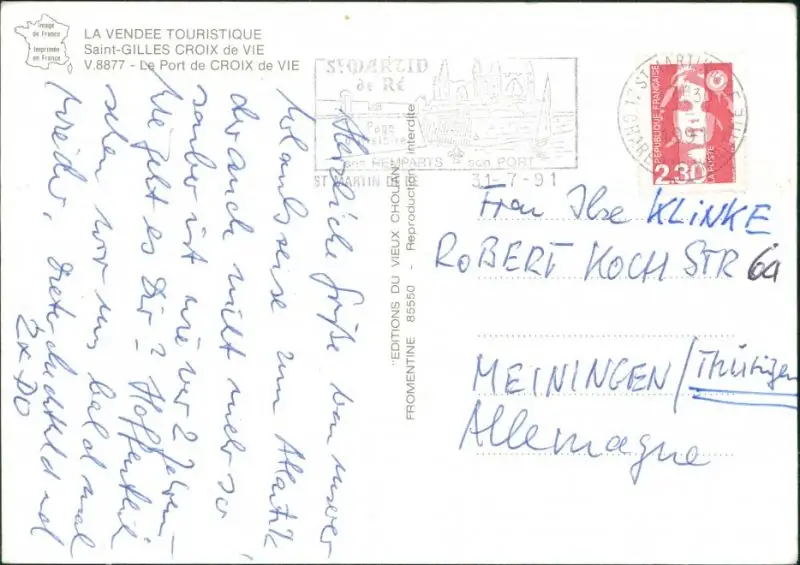 Image
de France
Imprimée
en France
LA VENDEE TOURISTIQUE
Saint-GILLES CROIX de VIE
V.8877 - Le Port de CROIX de VIE
St MARTIN
de RÉ
REMPARTS son PORT
ST MARTIN DE RE 31-7-91
REPUBLIQUE FRANÇAISE
LA POSTE
2,30
"EDITIONS DU VIEUX CHOUAN"
FROMENTINE 85550 - Reproduction interdite
Herzliche Grüße von unserer
Urlaubsreise zum Atlantik
der auch nicht mehr so
sauber ist wie vor 2 Jahren -
Wie geht es Dir? Hoffentlich
sehen wir uns bald mal
wieder, Dieter und
Frau Ilse KLINKE
ROBERT KOCH STR 6a
MEININGEN / Thüringen
Allemagne